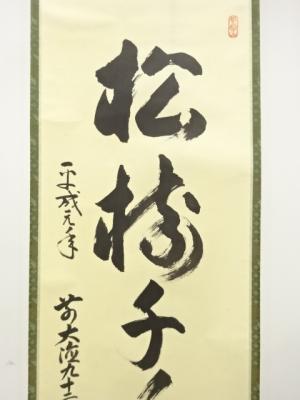 松樹千
平成元年
前大徳九十